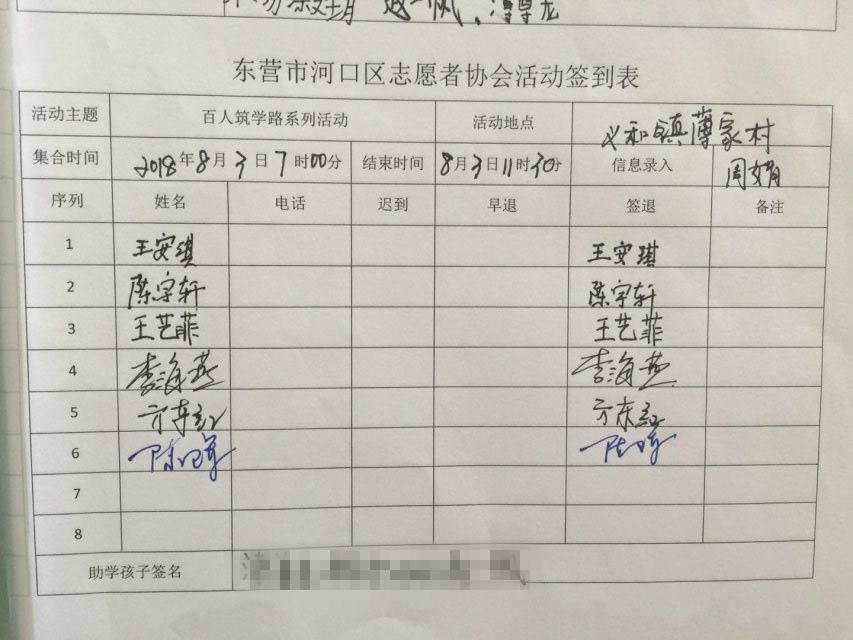 东营市河口区志愿者协会活动签到表
活动主题 百人筑学路系列活动 活动地点 义和镇薄家村
集合时间 2018年8月3日7时00分 结束时间 8月3日11时30分 信息录入 周娟
序列 姓名 电话 迟到 早退 签退 备注
1 王安琪 王安琪
2 陈宇轩 陈宇轩
3 王艺菲 王艺菲
4 李海燕 李海燕
5
6
7
8
助学孩子签名